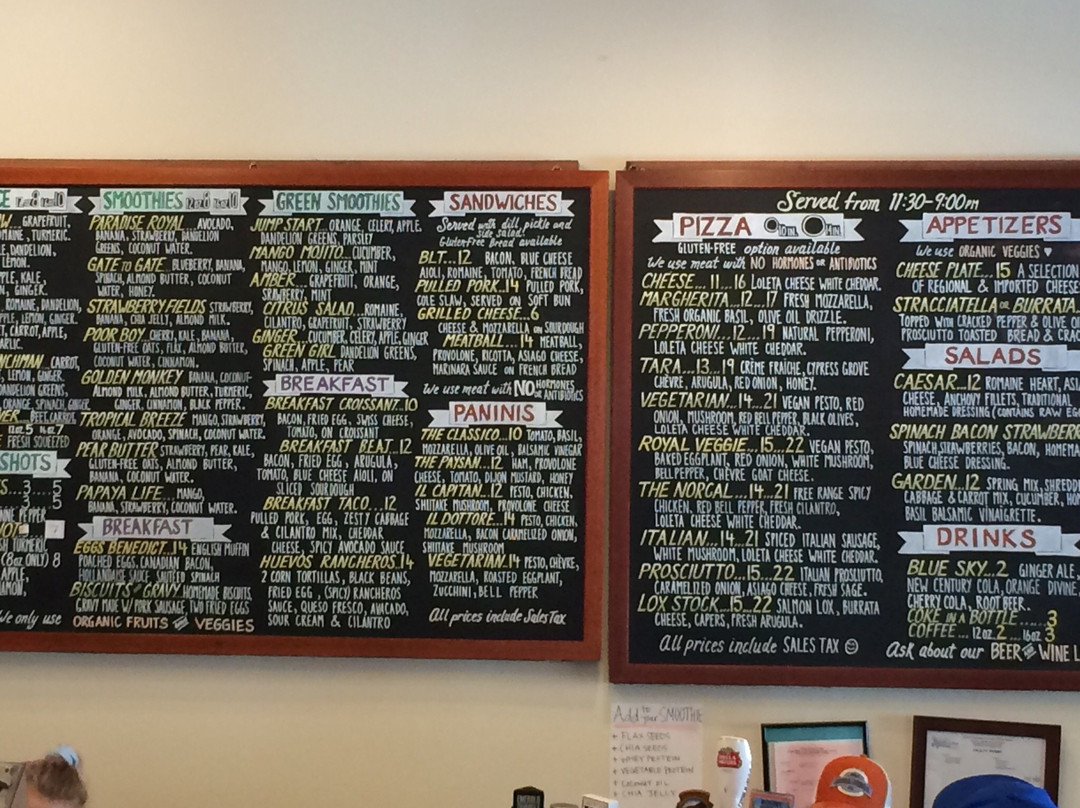 GRAPEFRUIT,
TURMERIC.
DANDELION,
LEMON.
KALE,
GINGER.
ROMAINE, DANDELION,
APPLE, LEMON, GINGER.
CARROT, APPLE,
CARROT,
LEMON, GINGER.
DANDELION GREENS,
ORANGE, SPINACH, GINGER
FRESH SQUEEZED
SHOTS
TURMERIC,
(8oz ONLY) 8
APPLE,
We only use ORGANIC FRUITS AND VEGGIES
SMOOTHIES
PARADISE ROYAL AVOCADO,
BANANA, STRAWBERRY, DANDELION
GREENS, COCONUT WATER.
GATE TO GATE BLUEBERRY, BANANA,
SPINACH, ALMOND BUTTER, COCONUT
WATER, HONEY.
STRAWBERRY FIELDS STRAWBERRY,
BANANA, CHIA JELLY, ALMOND MILK.
POOR BOY CHERRY, KALE, BANANA,
GLUTEN-FREE OATS, FLAX, ALMOND BUTTER,
COCONUT WATER, CINNAMON.
GOLDEN MONKEY BANANA, COCONUT-
ALMOND MILK, ALMOND BUTTER, TURMERIC,
GINGER, CINNAMON, BLACK PEPPER.
TROPICAL BREEZE MANGO, STRAWBERRY,
ORANGE, AVOCADO, SPINACH, COCONUT WATER.
PEAR BUTTER STRAWBERRY, PEAR, KALE,
GLUTEN-FREE OATS, ALMOND BUTTER,
BANANA, COCONUT WATER.
PAPAYA LIFE... MANGO,
BANANA, STRAWBERRY, COCONUT WATER.
BREAKFAST
EGGS BENEDICT..14 ENGLISH MUFFIN
POACHED EGGS, CANADIAN BACON,
HOLLANDAISE SAUCE, SAUTEED SPINACH
BISCUITS & GRAVY HOMEMADE BISCUITS
GRAVY MADE W/ PORK SAUSAGE, TWO FRIED EGGS
GREEN SMOOTHIES
JUMP START ORANGE, CELERY, APPLE,
DANDELION GREENS, PARSLEY
MANGO MOJITO...CUCUMBER,
MANGO, LEMON, GINGER, MINT
AMBER... GRAPEFRUIT, ORANGE,
SRAWBERRY, MINT
CITRUS SALAD...ROMAINE,
CILANTRO, GRAPEFRUIT, STRAWBERRY
GINGER...CUCUMBER, CELERY, APPLE, GINGER
GREEN GIRL DANDELION GREENS,
SPINACH, APPLE, PEAR
BREAKFAST
BREAKFAST CROISSANT..10
BACON, FRIED EGG, SWISS CHEESE,
TOMATO, ON CROISSANT
BREAKFAST BEAT..12
BACON, FRIED EGG, ARUGULA,
TOMATO, BLUE CHEESE AIOLI, ON
SLICED SOURDOUGH
BREAKFAST TACO...12
PULLED PORK, EGG, ZESTY CABBAGE
& CILANTRO MIX, CHEDDAR
CHEESE, SPICY AVOCADO SAUCE
HUEVOS RANCHEROS.14
2 CORN TORTILLAS, BLACK BEANS,
FRIED EGG, (SPICY) RANCHEROS
SAUCE, QUESO FRESCO, AVOCADO,
SOUR CREAM & CILANTRO
SANDWICHES
Served with dill pickle and
side salad.
Gluten-Free Bread available
BLT...12 BACON, BLUE CHEESE
AIOLI, ROMAINE, TOMATO, FRENCH BREAD
PULLED PORK..14 PULLED PORK,
COLE SLAW, SERVED ON SOFT BUN
GRILLED CHEESE...6
CHEESE & MOZZARELLA ON SOURDOUGH
MEATBALL...14 MEATBALL,
PROVOLONE, RICOTTA, ASIAGO CHEESE,
MARINARA SAUCE ON FRENCH BREAD
We use meat with NO HORMONES OR ANTIBIOTICS
PANINIS
THE CLASSICO...10 TOMATO, BASIL,
MOZZARELLA, OLIVE OIL, BALSAMIC VINEGAR
THE PAYSAN...12 HAM, PROVOLONE
CHEESE, TOMATO, DIJON MUSTARD, HONEY
IL CAPITAN...12 PESTO, CHICKEN,
SHIITAKE MUSHROOM, PROVOLONE CHEESE
IL DOTTORE..14 PESTO, CHICKEN,
MOZZARELLA, BACON CARAMELIZED ONION,
SHIITAKE MUSHROOM
VEGETARIAN..14 PESTO, CHÈVRE,
MOZZARELLA, ROASTED EGGPLANT,
ZUCCHINI, BELL PEPPER
All prices include Sales Tax
Served from 11:30-9:00PM
PIZZA 10 IN. 14 IN.
GLUTEN-FREE option available
We use meat with NO HORMONES OR ANTIBIOTICS
CHEESE...11...16 LOLETA CHEESE WHITE CHEDDAR.
MARGHERITA...12...17 FRESH MOZZARELLA,
FRESH ORGANIC BASIL, OLIVE OIL DRIZZLE.
PEPPERONI...12...19 NATURAL PEPPERONI,
LOLETA CHEESE WHITE CHEDDAR.
TARA...13...19 CRÈME FRAÎCHE, CYPRESS GROVE
CHÈVRE, ARUGULA, RED ONION, HONEY.
VEGETARIAN...14...21 VEGAN PESTO, RED
ONION, MUSHROOM, RED BELL PEPPER, BLACK OLIVES,
LOLETA CHEESE WHITE CHEDDAR.
ROYAL VEGGIE...15...22 VEGAN PESTO,
BAKED EGGPLANT, RED ONION, WHITE MUSHROOM,
BELL PEPPER, CHÈVRE GOAT CHEESE.
THE NORCAL...14...21 FREE RANGE SPICY
CHICKEN, RED BELL PEPPER, FRESH CILANTRO,
LOLETA CHEESE WHITE CHEDDAR.
ITALIAN...14...21 SPICED ITALIAN SAUSAGE,
WHITE MUSHROOM, LOLETA CHEESE WHITE CHEDDAR.
PROSCIUTTO...15...22 ITALIAN PROSCIUTTO,
CARAMELIZED ONION, ASIAGO CHEESE, FRESH SAGE.
LOX STOCK...15...22 SALMON LOX, BURRATA
CHEESE, CAPERS, FRESH ARUGULA.
All prices include SALES TAX
APPETIZERS
We use ORGANIC VEGGIES
CHEESE PLATE...15 A SELECTION
OF REGIONAL & IMPORTED CHEESE
STRACCIATELLA OR BURRATA
TOPPED WITH CRACKED PEPPER & OLIVE
PROSCIUTTO TOASTED BREAD &
SALADS
CAESAR...12 ROMAINE HEART,
CHEESE, ANCHOVY FILLETS, TRADITIONAL
HOMEMADE DRESSING (CONTAINS RAW
SPINACH BACON STRAWBERR
SPINACH, STRAWBERRIES, BACON,
BLUE CHEESE DRESSING.
GARDEN...12 SPRING MIX,
CABBAGE & CARROT MIX, CUCUMBER,
BASIL BALSAMIC VINAIGRETTE.
DRINKS
BLUE SKY...2 GINGER ALE,
NEW CENTURY COLA, ORANGE DIVINE,
CHERRY COLA, ROOT BEER.
COKE IN A BOTTLE.......3
COFFEE... 12oz. 2 ... 16oz 3
Ask about our BEER AND WINE L
Add to your SMOOTHIE
+ FLAX SEEDS
+ CHIA SEEDS
+ WHEY PROTEIN
+ VEGETABLE PROTEIN
+ COCONUT OIL
+ CHIA JELLY